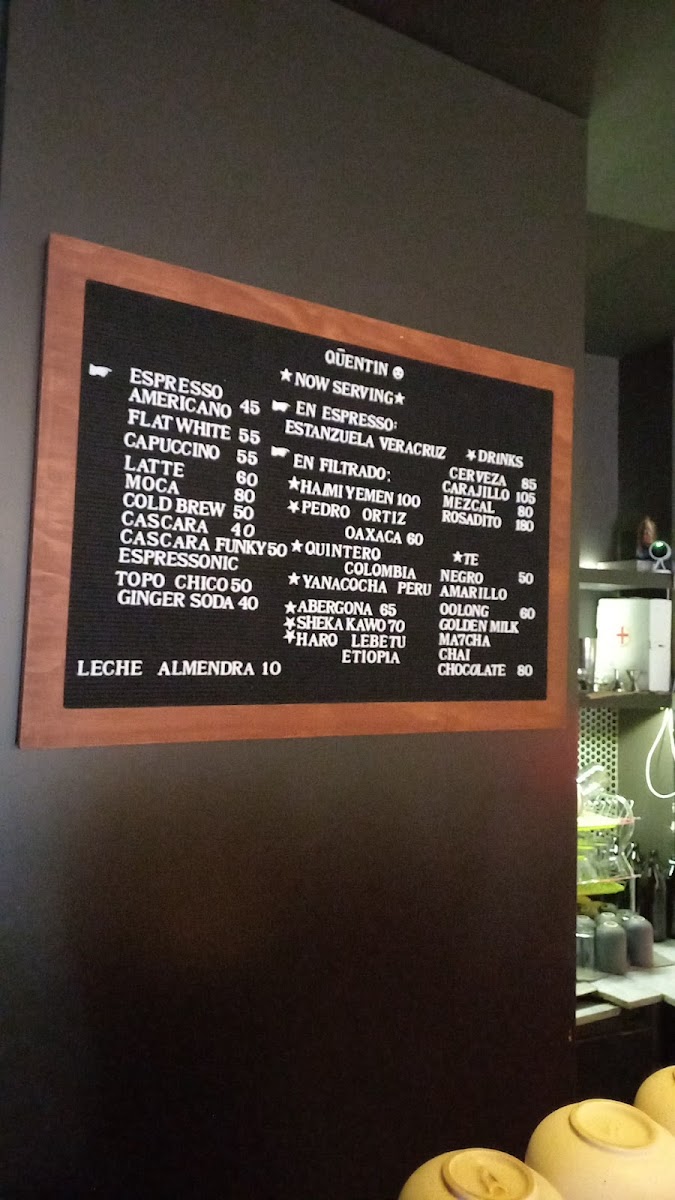 QŪENTIN
★NOW SERVING★
ESPRESSO
AMERICANO 45
FLAT WHITE 55
CAPUCCINO 55
LATTE 60
MOCA 80
COLD BREW 50
CASCARA 40
CASCARA FUNKY 50
ESPRESSONIC
TOPO CHICO 50
GINGER SODA 40
LECHE ALMENDRA 10
EN ESPRESSO:
ESTANZUELA VERACRUZ
EN FILTRADO:
★HAIMI YEMEN 100
★PEDRO ORTIZ
OAXACA 60
★QUINTERO
COLOMBIA
★YANACOCHA PERU
★ABERGONA 65
★SHEKA KAWO 70
★HARO LEBETU
ETIOPIA
★DRINKS
CERVEZA 85
CARAJILLO 105
MEZCAL 80
ROSADITO 180
★TE
NEGRO 50
AMARILLO
OOLONG 60
GOLDEN MILK
MA7CHA
CHAI
CHOCOLATE 80